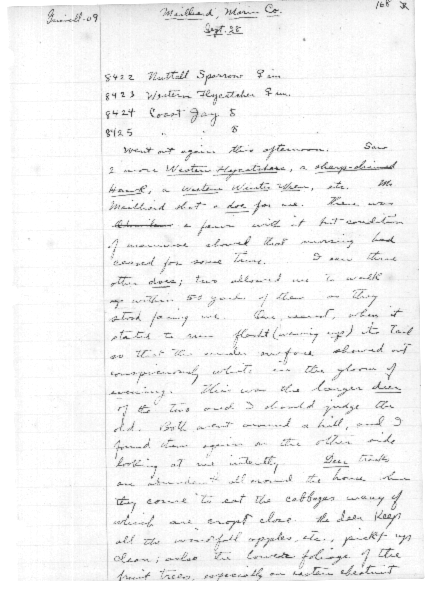 Grinnell-09
Mailliard, Marin Co.
168
Sept. 28
8422 Nuttall Sparrow ♀ im.
8423 Western Flycatcher ♀ im.
8424 Coast Jay 8
8425 " " 8
Went out again this afternoon. Saw
2 more Western Flycatchers, a sharp-shinned
Hawk, a Western Winter Wren, etc. Mr
Mailliard shot a doe for me. There was
a fawn with it but condition
of mammae showed that nursing had
ceased for some time. I saw three
other does; two allowed me to walk
up within 50 yards of them as they
stood facing me. One, nearest, when it
started to run flourisht (waving up) its tail
so that the under surface showed out
conspicuously white in the gloom of
evening. This was the larger deer
of the two and I should judge the
old. Both went around a hill, and I
found them again on the other side
looking at me intently. Deer tracks
are abundant all around the house where
they come to eat the cabbages many of
which are cropt close. The deer keep
all the windfall apples, etc., pickt up
clean; also the lower foliage of the
fruit trees, especially an eastern chestnut